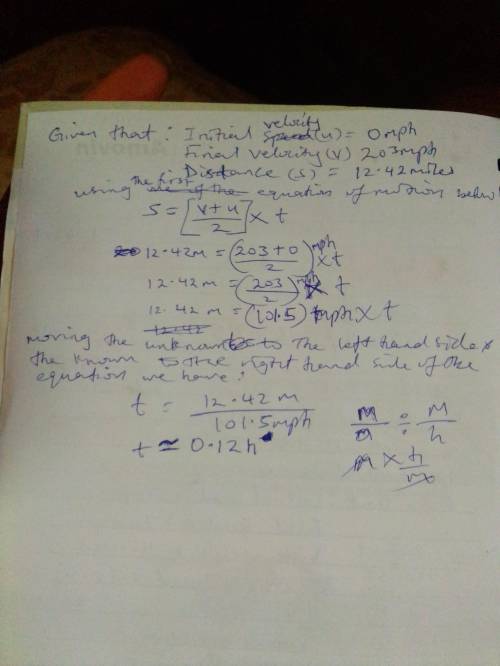 velocity
Given that: Initial speed (u) = 0mph
Final velocity (v) 203mph
Distance (s) = 12.42miles
the first
using equation of motion below
S = [v+u/2] x t
12.42m = (203+0/2)mph x t
12.42m = (203/2)mph x t
12.42m = (101.5) mph x t
12.42
moving the unknown to the left hand side &
the known to the right hand side of the
equation we have:
t = 12.42m/101.5mph
t ≃ 0.12h
m ÷ m/h
m x h/m